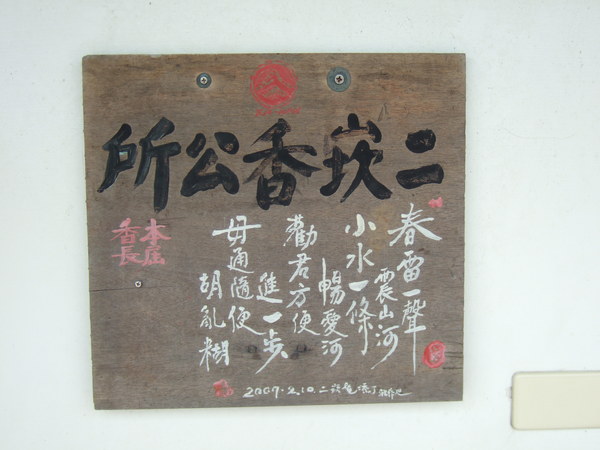 二崁香公所
春雷一聲
震山河
小水一條
暢愛河
勸君方便
進一步
毋通隨便
胡亂糊
本店
香長
2009.2.10.二崁